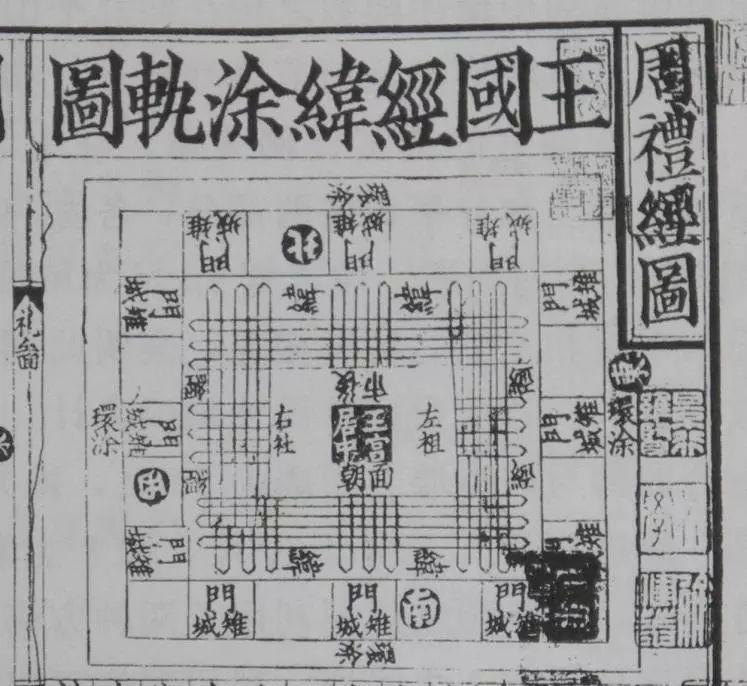 周禮經圖
王國經緯涂軌圖
禮圖
環涂
城雉 城雉 城雉
門 門 門
北
緯 緯
門 城雉
門 雉城
東
市後
經
左祖
王宮居中
右社
面朝
經
環涂
門 城雉
門 雉城
環涂
西
經
經
門 城雉
門 雉城
緯 緯
門 門 門
城雉 城雉 城雉
南
環涂